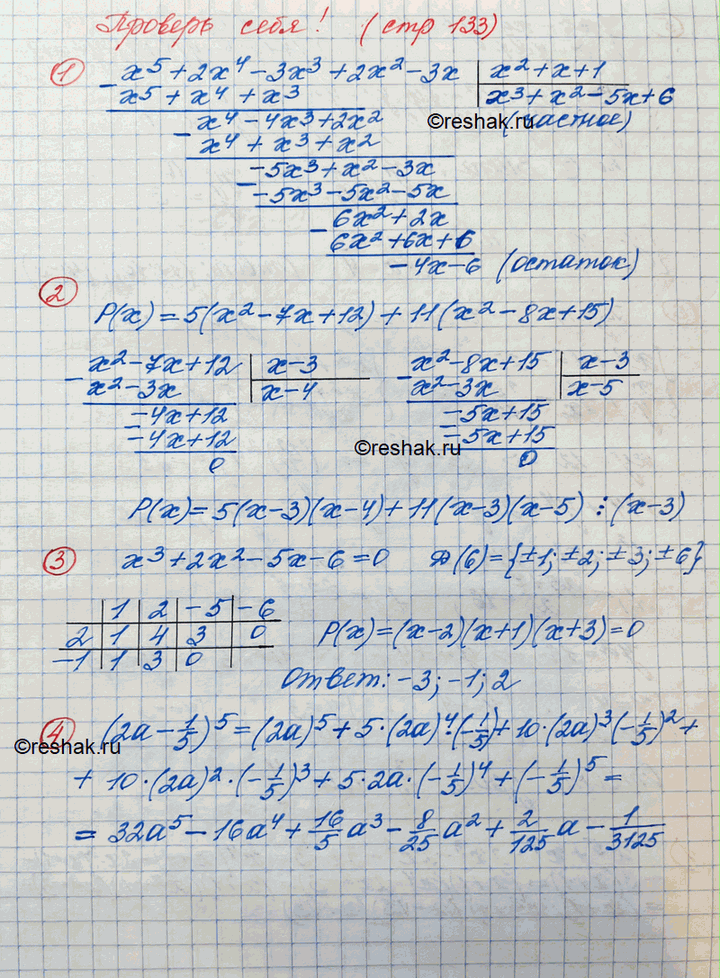 Проверь себя! (стр 133)
① x⁵ + 2x⁴ - 3x³ + 2x² - 3x | x² + x + 1
- x⁵ + x⁴ + x³ | x³ + x² - 5x + 6
x⁴ - 4x³ + 2x² (частное)
©reshak.ru
- x⁴ + x³ + x²
-5x³ + x² - 3x
- -5x³ - 5x² - 5x
6x² + 2x
- 6x² + 6x + 6
-4x - 6 (остаток)
②
P(x) = 5(x² - 7x + 12) + 11(x² - 8x + 15)
x² - 7x + 12 | x - 3 x² - 8x + 15 | x - 3
- x² - 3x | x - 4 - x² - 3x | x - 5
-4x + 12 -5x + 15
- -4x + 12 - -5x + 15
0 0
©reshak.ru
P(x) = 5(x-3)(x-4) + 11(x-3)(x-5) ⋮ (x-3)
③ x³ + 2x² - 5x - 6 = 0 D(6) = {±1; ±2; ±3; ±6}
| 1 | 2 | -5 | -6
2 | 1 | 4 | 3 | 0 P(x) = (x-2)(x+1)(x+3) = 0
-1 | 1 | 3 | 0 |
Ответ: -3; -1; 2
④ (2a - 1/5)⁵ = (2a)⁵ + 5·(2a)⁴·(-1/5) + 10·(2a)³(-1/5)² +
©reshak.ru
+ 10·(2a)²·(-1/5)³ + 5·2a·(-1/5)⁴ + (-1/5)⁵ =
= 32a⁵ - 16a⁴ + 16/5 a³ - 8/25 a² + 2/125 a - 1/3125